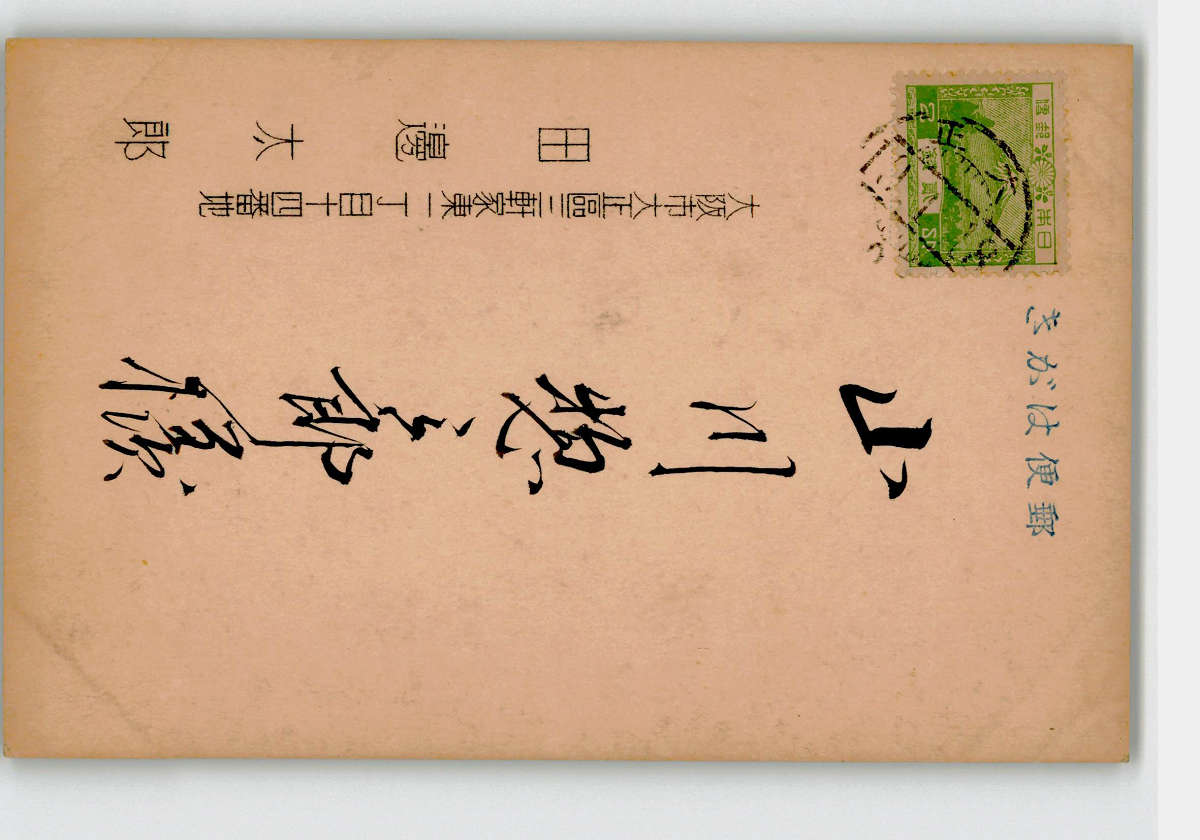 郵便はがき
日本郵便
貳錢
山川惣三郎様
大阪市大正區三軒家東一丁目十四番地
田邊太郎